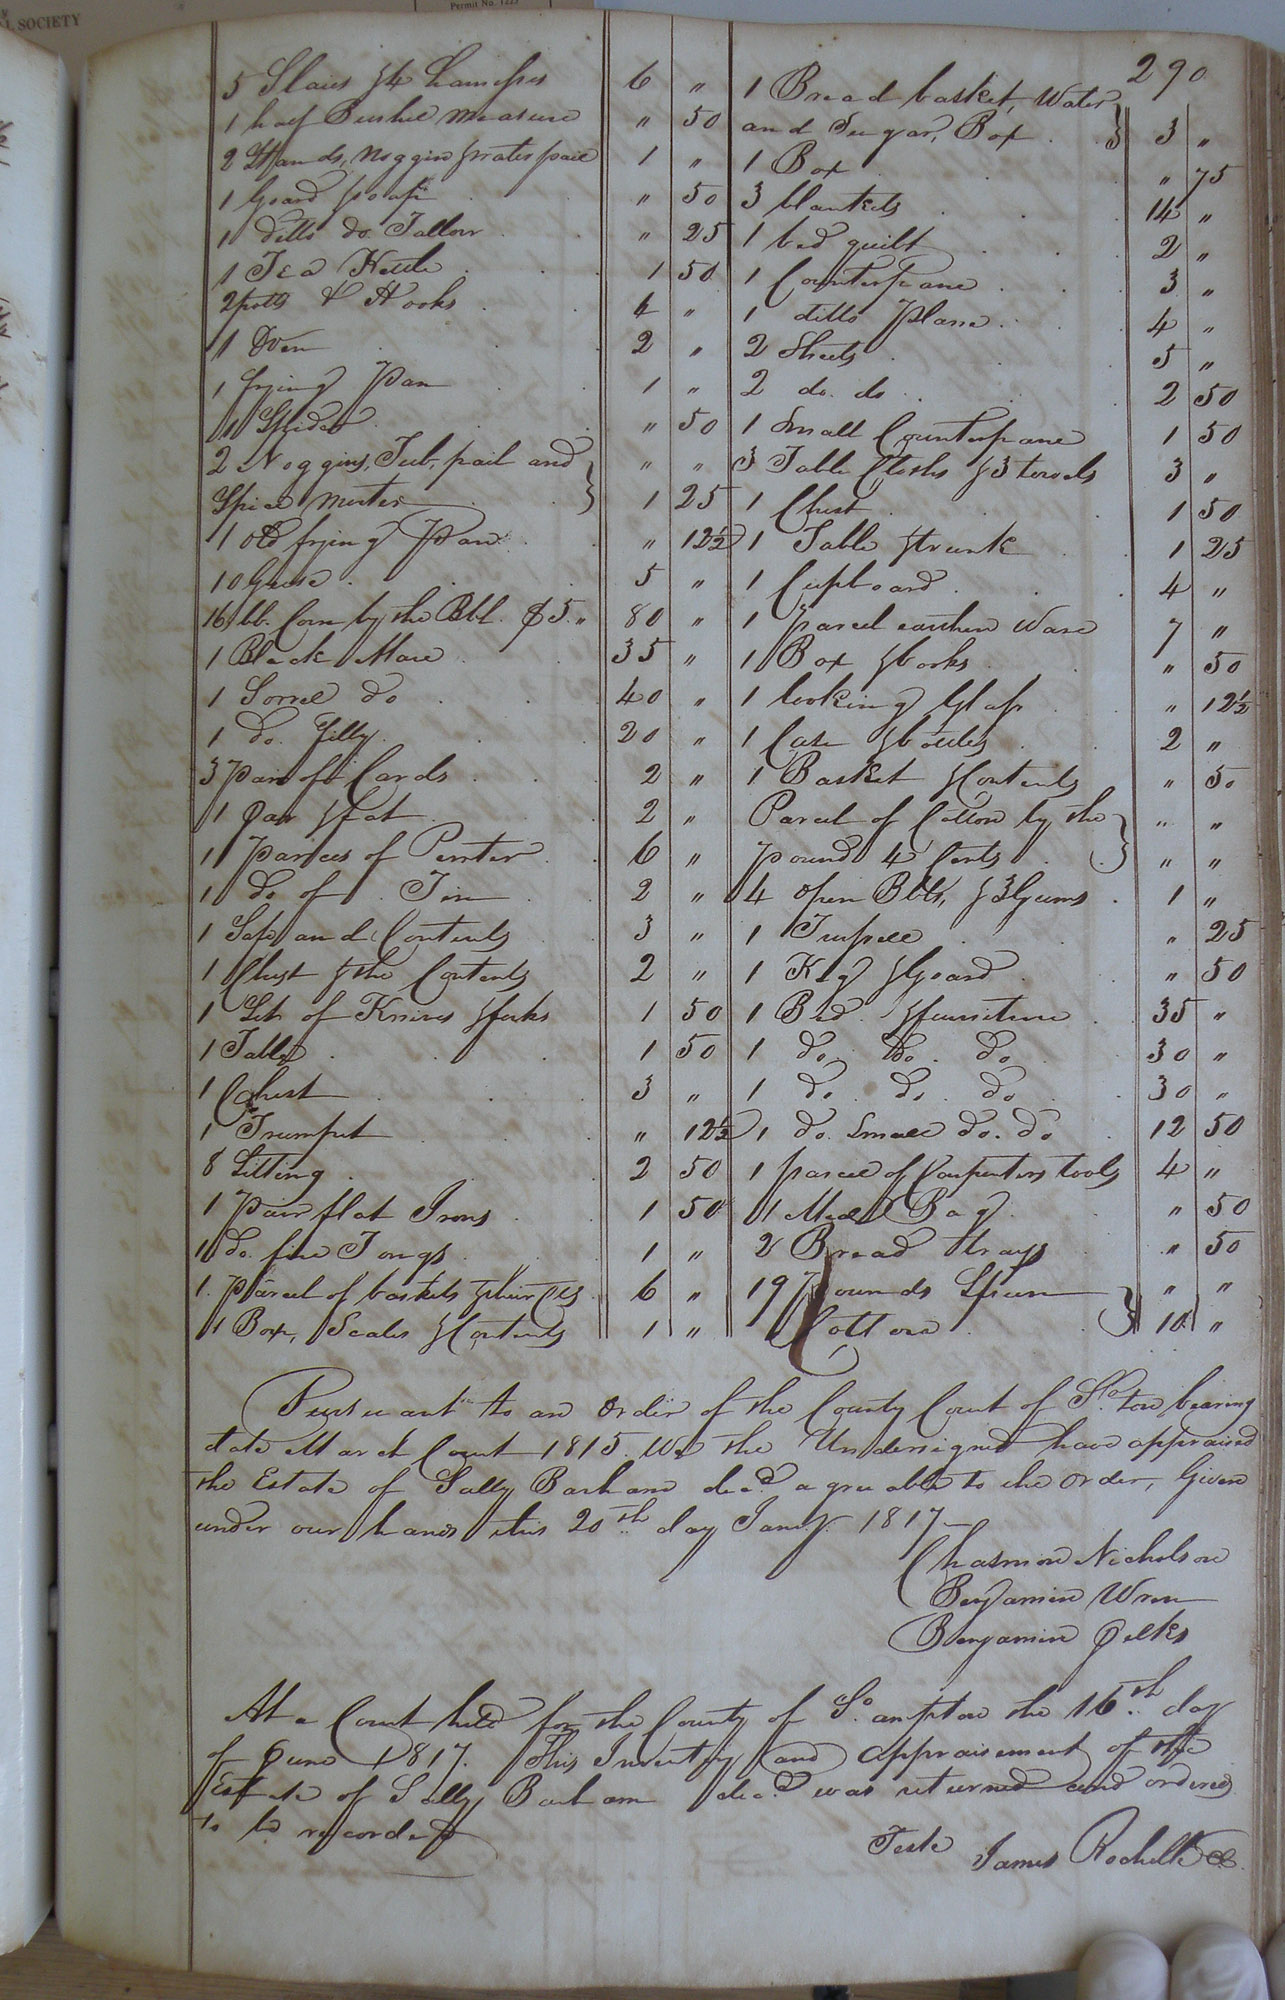 L SOCIETY
Permit No. 1225
290
5 Slaies & 4 harnesses 6 "
1 half Bushel measure " 50
2 Stands, Noggin & water pail 1 "
1 Goard & soap " 50
1 ditto do. Tallow " 25
1 Tea Kettle 1 50
2 pots & Hooks 4 "
1 Oven 2 "
1 frying Pan 1 "
1 Spider " 50
2 Noggins, Tub, pail and " "
Spice morter 1 25
1 old frying Pan " 12½
10 Geese 5 "
16 bb. Corn by the Bbl. $5 " 80 "
1 Black Mare 35 "
1 Sorrel do 40 "
1 do. filly 20 "
3 Pair of Cards 2 "
1 Jar & fat 2 "
1 Parcel of Pewter 6 "
1 do of Tin 2 "
1 Safe and Contents 3 "
1 Chest & the Contents 2 "
1 Set of Knives & forks 1 50
1 Table 1 50
1 Chest 3 "
1 Trumpet " 12½
8 Sitting 2 50
1 Pair flat Irons 1 50
1 do. fire Tongs 1 "
1 Parcel of baskets 6 "
1 Box, Scales & Contents 1 "
1 Bread basket, Water
and Sugar, Box 3 "
1 Box " 75
3 blankets 14 "
1 bed quilt 2 "
1 Counterpane 3 "
1 ditto Plane 4 "
2 Sheets 5 "
2 do. do 2 50
1 Small Counterpane 1 50
3 Table Cloths & 3 towels 3 "
1 Chest 1 50
1 Table & trunk 1 25
1 Cupboard 4 "
1 parcel earthen Ware 7 "
1 Box & books " 50
1 looking Glass " 12½
1 Case & bottles 2 "
1 Basket & Contents " 50
Parcel of Cotton by the " "
pound 4 Cents " "
4 open Bbls, & 3 Gums 1 "
1 " 25
1 Keg & Goard " 50
1 Bed & furniture 35 "
1 do. do. do 30 "
1 do. do. do 30 "
1 do. Small do. do 12 50
1 parcel of Carpenters tools 4 "
1 Meal Bag " 50
2 Bread trays " 50
19 Pounds Spun " "
Cotton 10 "
Pursuant to an Order of the County Court of So. ton bearing
date March Court 1815. We the Undersigned have appraised
the Estate of Sally Barham decd. agreeable to the order, Given
under our hands this 20th day Jany. 1817
Chasmon Nicholson
Benjamin Wren
Benjamin Jelks
At a Court held for the County of So. ampton the 16th day
of June 1817. This Inventory and Appraisement of the
Estate of Sally Barham decd was returned and ordered
to be recorded
Teste James Rochelle